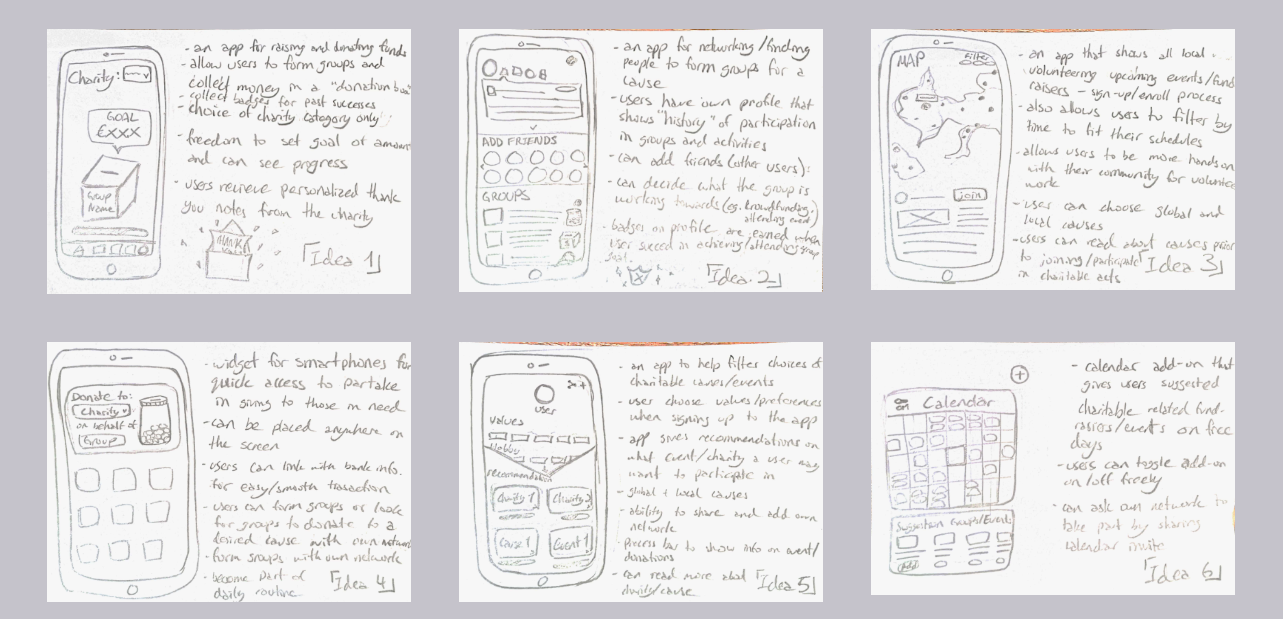 Charity:
GOAL
£XXX
Group
Name
THANK
- an app for raising and donating funds
- allow users to form groups and
collect money in a "donation box"
- collect badges for past successes
- choice of charity category only
- freedom to set goal of amount
and can see progress
- users recieve personalized thank
you notes from the charity
「Idea 1」
ADD FRIENDS
GROUPS
- an app for networking/finding
people to form groups for a
cause
- users have own profile that
shows "history" of participation
in groups and activities
- can add friends (other users):
- can decide what the group is
working towards (eg. crowdfunding,
attending event)
- badges on profile are earned when
user succeed in achieving/attending group
goal.
「Idea 2」
MAP
Filter
join
- an app that shows all local
volunteering upcoming events/fund
raisers - sign-up/enroll process
- also allows users to filter by
time to fit their schedules
- allows users to be more hands on
with their community for volunteer
work
- users can choose global and
local causes
- users can read about causes prior
to joining/participate
in charitable acts
「Idea 3」
Donate to:
Charity
on behalf of
Group
- widget for smartphones for
quick access to partake
in giving to those in need
- can be placed anywhere on
the screen
- users can link with bank info.
for easy/smooth trasaction
- users can form groups or look
for groups to donate to a
desired cause with own network
- form groups with own network
- become part of
daily routine
「Idea 4」
user
values
Hobby
recommendation
Charity 1
Charity 2
Cause 1
Event 1
- an app to help filter choices of
charitable causes/events
- user choose values/preferences
when signing up to the app
- app gives recommendations on
what event/charity a user may
want to participate in
- global + local causes
- ability to share and add own
network
- process bar to show info on event/
donations
- can read more about
charity/cause
「Idea 5」
on
Calendar
Suggestion Groups/Events
- calendar add-on that
gives users suggested
charitable related fund-
rasiers/events on free
days
- users can toggle add-on
on/off freely
- can ask own network to
take part by sharing
calendar invite
「Idea 6」